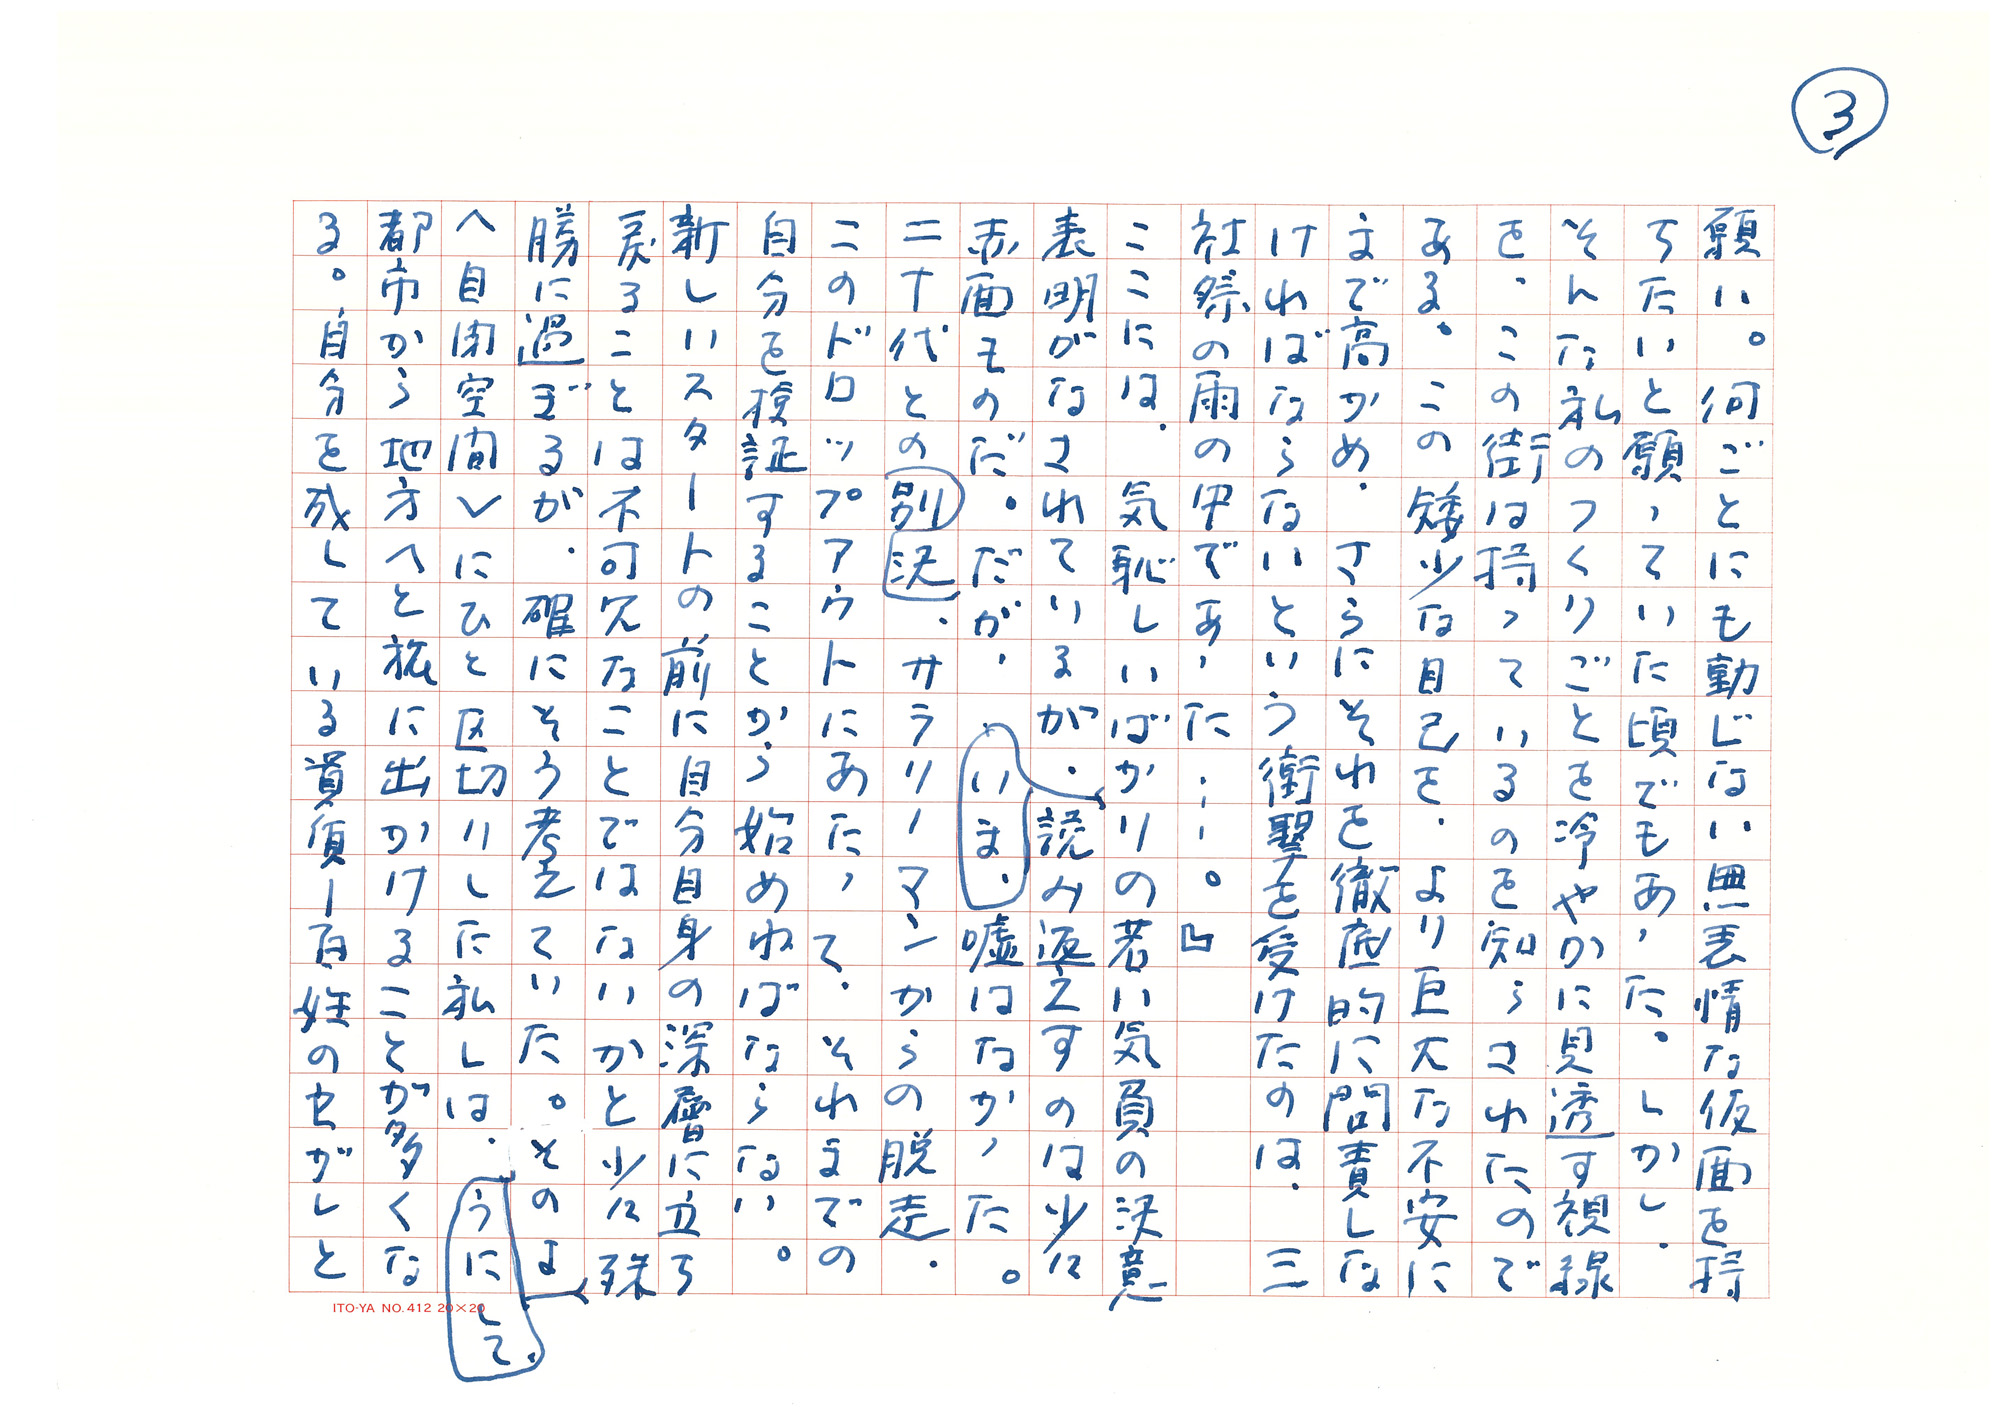 ③
願い。何ごとにも動じない無表情な仮面を持
ちたいと願っていた頃でもあった。しかし、
そんな私のつくりごとを冷やかに見透す視線
を、この街は持っているのを知らされたので
ある。この矮少な自己を、より巨大な不安に
まで高かめ、さらにそれを徹底的に問責しな
ければならないという衝撃を受けたのは、三
社祭の雨の中であった……。』
ここには、気恥しいばかりの若い気負の決意
表明がなされているが、いま、読み返えすのは少々
赤面ものだ。だが、嘘はなかった。
二十代との訣別、サラリーマンからの脱走、
このドロップアウトにあたって、それまでの
自分を検証することから始めねばならない。
新しいスタートの前に自分自身の深層に立ち
戻ることは不可欠なことではないかと少々殊
勝に過ぎるが、確にそう考えていた。そのよ
うにして、
へ自閉空間ㇾにひと区切りした私しは、
都市から地方へと旅に出かけることが多くな
る。自分を成している道須ー百姓のセがしと
ITO-YA NO.412 20×20